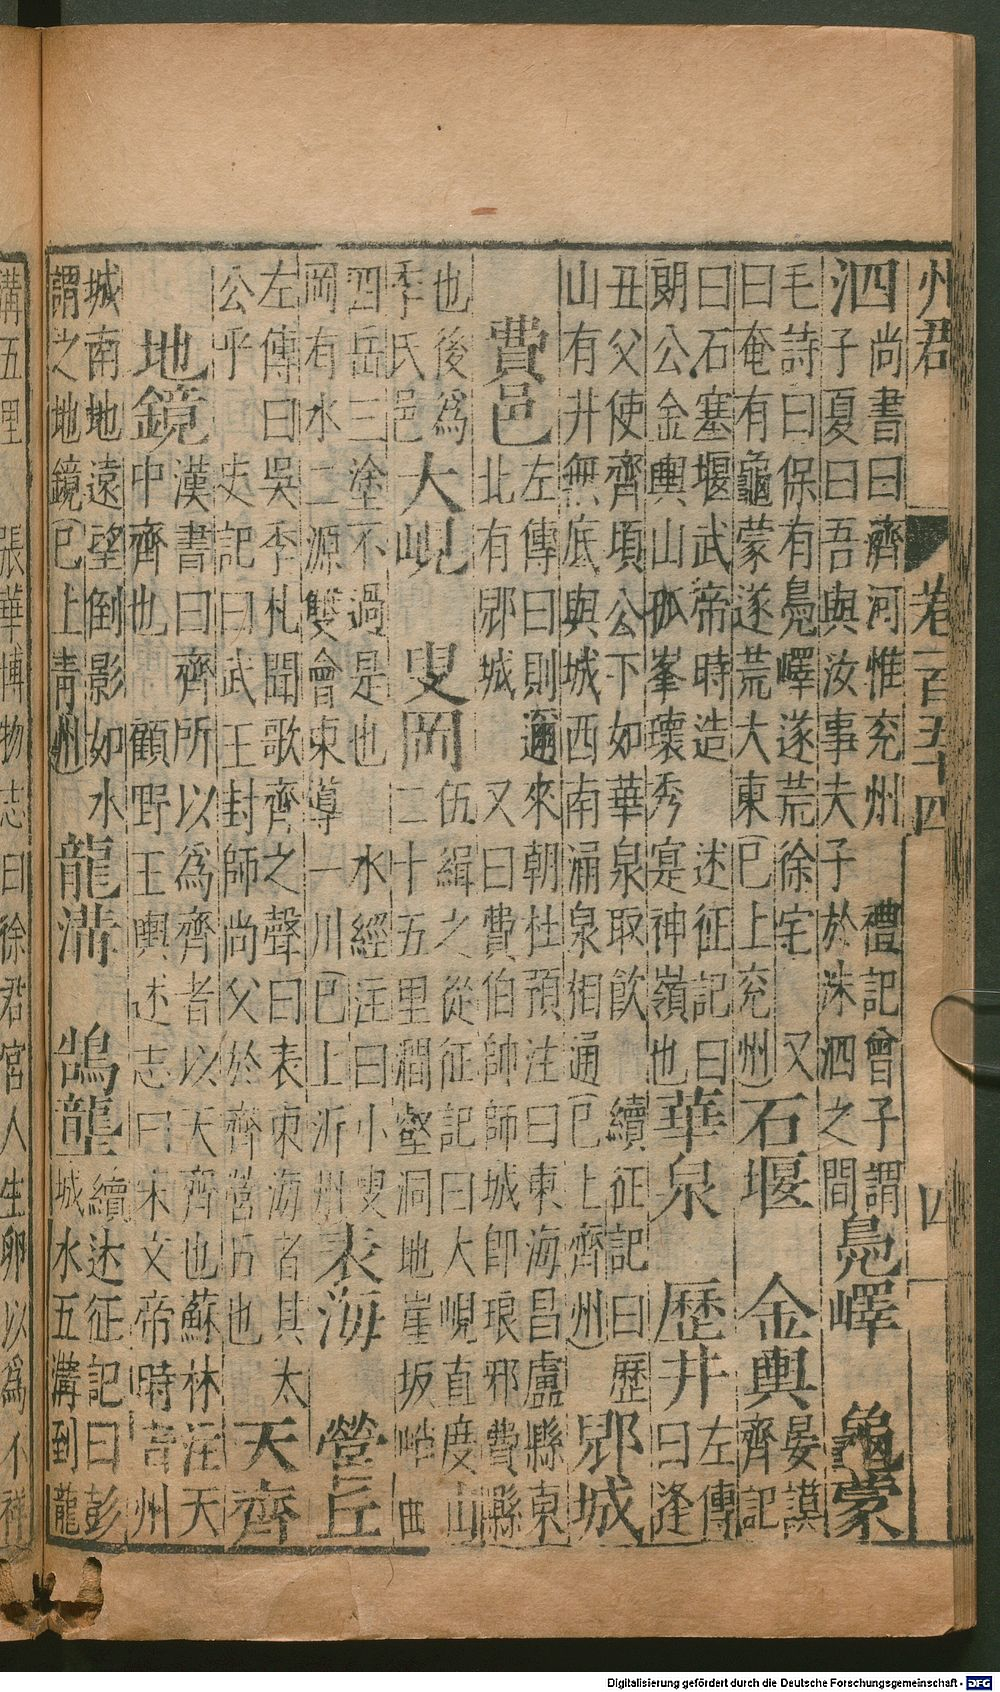 州郡 卷一百五十四 四
泗 尚書曰濟河惟兖州 禮記曾子謂
子夏曰吾與汝事夫子於洙泗之間 鳧嶧 龜蒙
毛詩曰保有鳧嶧遂荒徐宅 又
曰奄有龜蒙遂荒大東(已上兖州) 石堰 金輿 晏謨
齊記
曰石塞堰武帝時造 述征記曰
朗公金輿山孤峯瓌秀寔神嶺也 華泉 歷井 左傳
曰逢
丑父使齊頃公下如華泉取飲 續征記曰歷
山有井無底與城西南涌泉相通(已上齊州) 郎城
費邑 左傳曰則邇來朝杜預注曰東海昌盧縣東
北有郎城 又曰費伯帥師城即琅邪費縣
也後爲
季氏邑 大峴 叟岡 伍緝之從征記曰大峴直度山
二十五里澗壑洞地崖坂峭曲
四岳三塗不過是也 水經注曰小叟
岡有水二源雙會東導一川(已上沂州) 表海 營丘
左傳曰吳季札聞歌齊之聲曰表東海者其太
公乎 史記曰武王封師尚父於齊營丘也 天齊
地鏡 漢書曰齊所以爲齊者以天齊也蘇林注天
中齊也 顧野王輿述志曰宋文帝時青州
城南地遠望倒影如水
謂之地鏡(已上青州) 龍溝 鵠壟 續述征記曰彭
城水五溝到龍
溝五里 張華博物志曰徐君宮人生卵以爲不祥
Digitalisierung gefördert durch die Deutsche Forschungsgemeinschaft - DFG